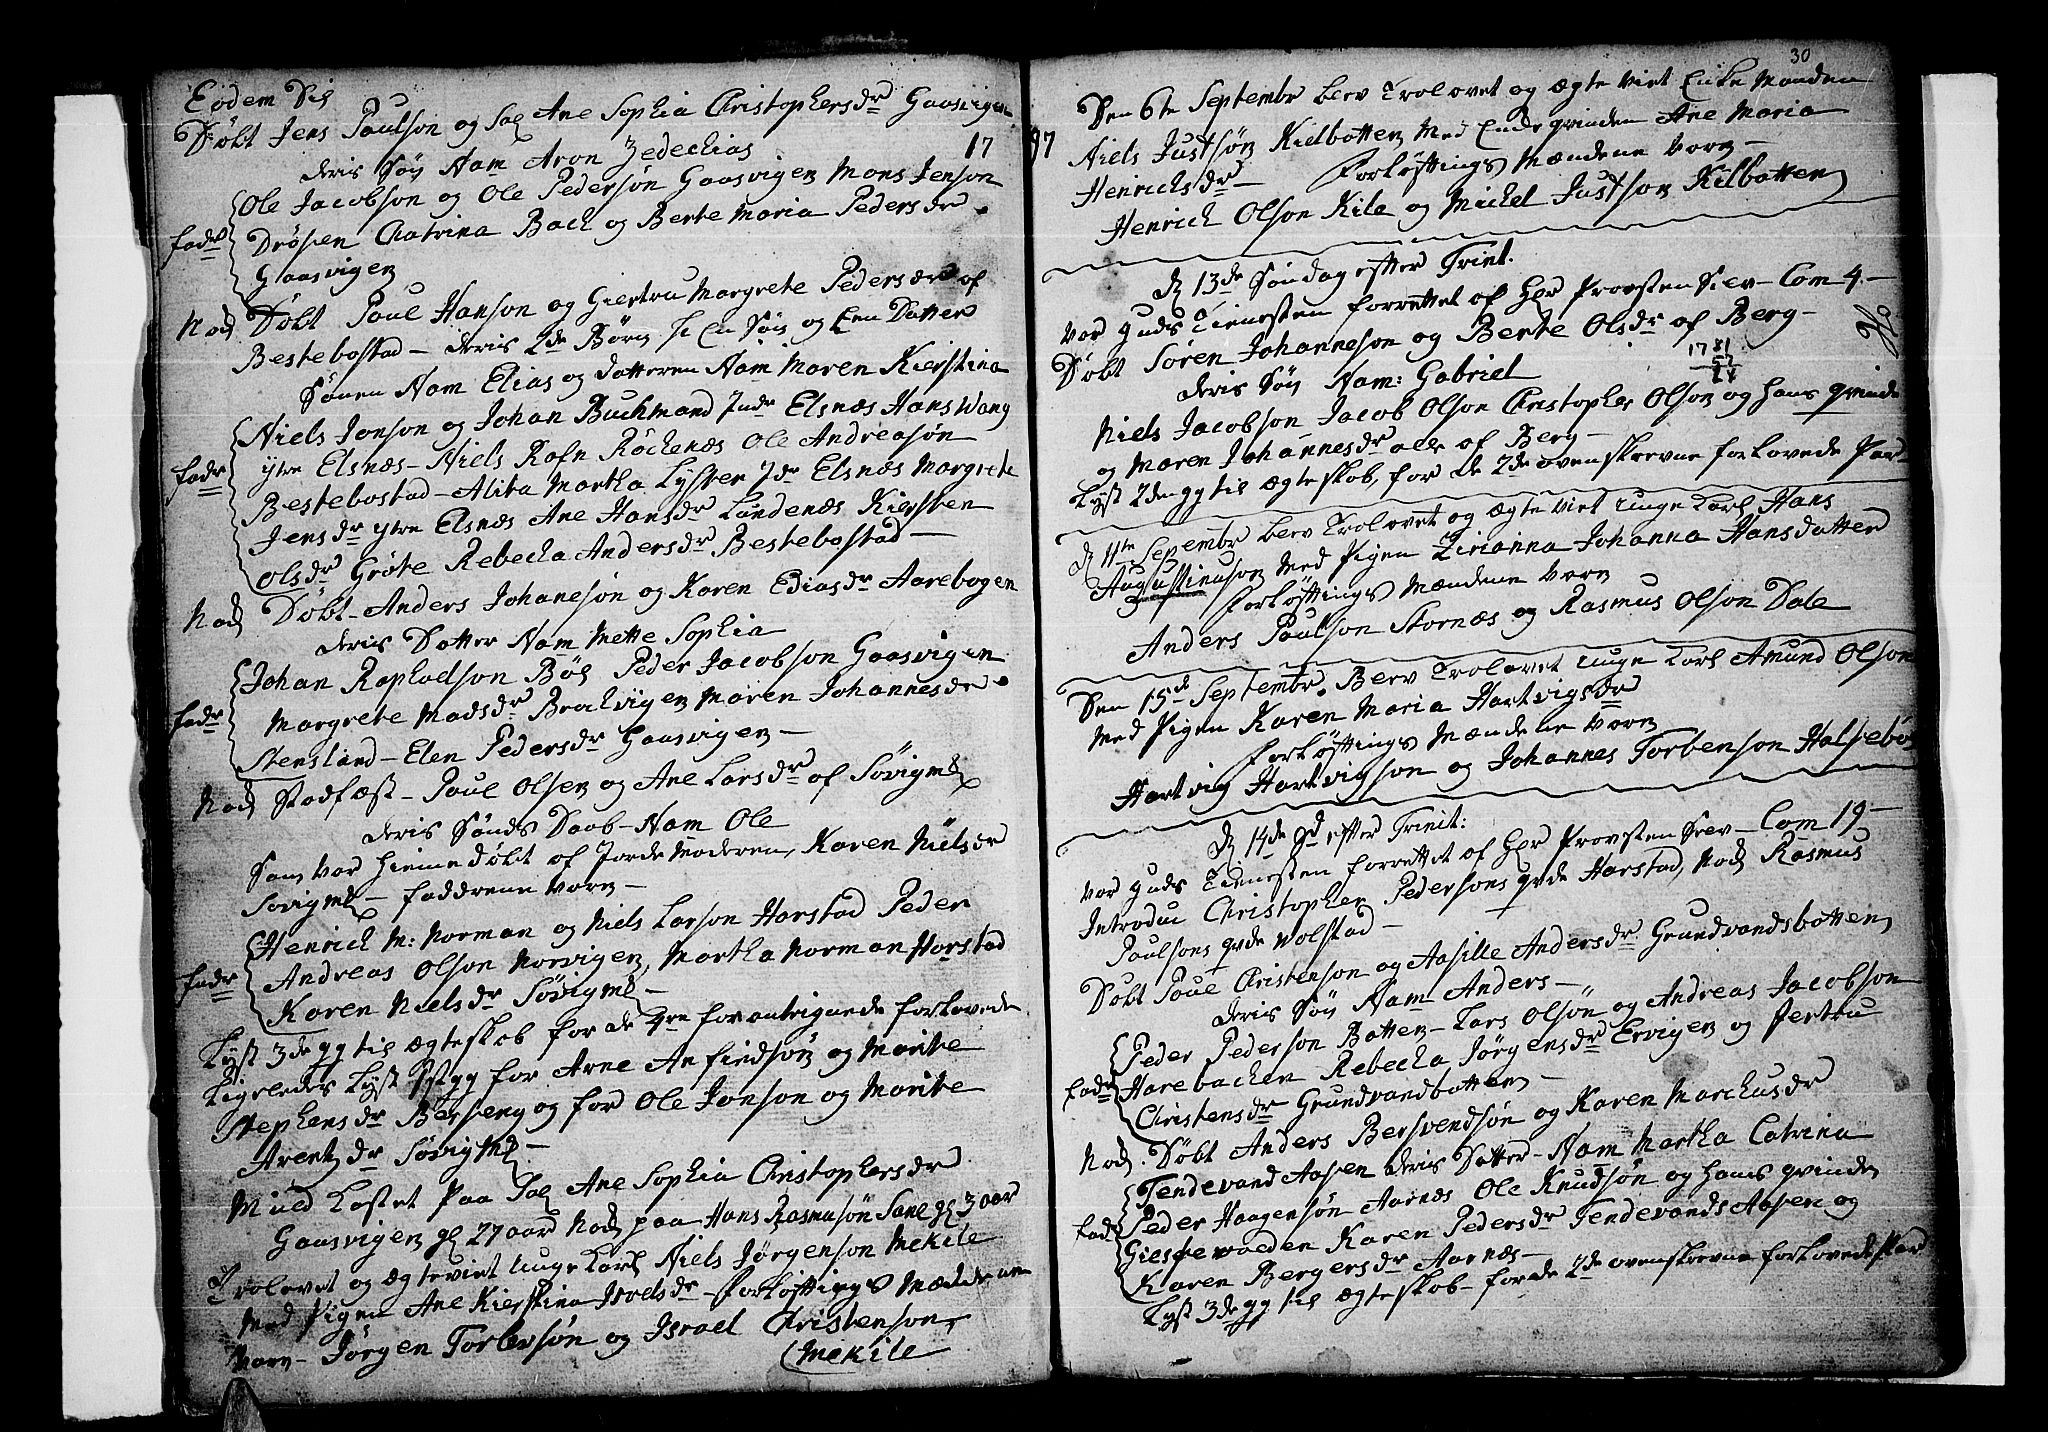 Eodem Die
Døbt Jens Paulson og Sal Ane Sophia Christophersdr Gaasvigen
deris Søn Nam Aron Zedechias 17
Ole Jacobson og Ole Pedersøn Gaasvigen Mons Jenson
fadr Drøsen Chatrina Bach og Berte Maria Pedersdr
Gaasvigen
Nod Døbt Poul Hanson og Giertru Margrete Pedersdr af
Bestebostad – deris 2de Børn en Søn og Een Datter
Sønen Nam Elias og datteren Nam Maren Kierstina
Niels Jonson og Johan Buchmand Indr Elsnæs Hans Wang
fadr ytre Elsnæs – Niels Rafn Røchenæs Ole Andreasøn
Bestebostad – Alita Martha Lyster Idr Elsnæs Margrete
Jensdr ytre Elsnæs Ane Hansdr Sandenæs Kiersten
Olsdr Grøte Rebecha Andersdr Bestebostad –
Nod Døbt – Anders Johanesøn og Karen Ediasdr Aarebogen
deris Datter Nam Mette Sophia
Johan Raphaelson Bøl Peder Jacobson Gaasvigen
fadr Margrete Madsdr Brochvigen Maren Johannesdr
Stensland – Elen Pedersdr Gaasvigen –
Nod Stadfæst – Poul Olsen og Ane Larsdr af Søvigml
deris Sønds Daab – Nam Ole
Som var hieme døbt af Jorde Moderen, Karen Nielsdr
Søvigml – fadderne vorn –
Henrich M: Norman og Niels Larson Harstad Peder
fadr Andreas Olson Norvigen, Martha Norman Harstad
Karen Nielsdr Søvigml –
Lyst 3de gg til ægteskob for de 4re forantegnede forlovede
Ligeledes Lyst 1st gg for Arne Anfindsøn og Marite
Stephensdr Berseng og for Ole Jonson og Marite
Arentzdr Søvigml –
Muld Kastet paa Sal Ane Sophia Christophersdr
Gaasvigen gl 27 aar Nod paa Hans Rasmusøn Sane gl 3 aar
Trolovet og ægteviet unge Karl Niels Jørgenson Mekile
Med Pigen Ane Kierstina Iraelsdr – Forløftings Mændene
Vorn – Jørgen Torbersøn og Israel Christenson
Mekile
30
97
Den 6te Septembr blev Trolovet og ægte viet Enke Manden
Niels Justsøn Kielbotten Med Ende qvinden Ane Maria
Henrichsdr – Forløftings Mændene Vorn –
Henrich Olson Kile og Michel Justson Kilbotten
D 13de Søndag efter Trint.
var Guds Tienesten forrettet af Her Provsten Siev – Com 4 –
Døbt Søren Johanneson og Berte Olsdr af Berg –
1781
57
24
deris Søn Nam: Gabriel
Niels Jacobson Jacob Olson Christopher Olson og hans qvinde
og Maren Johannesdr alle af Berg –
Lyst 2den gg til ægteskob, for de 2de ovenskrevne forlovede Par
D 11te Septembr blev Trolovet og ægte viet unge Karl Hans
Augustinuson Med Pigen Zirianna Johanna Hansdatter
Forløftings Mændene Vorn
Anders Paulson Stornæs og Rasmus Olson Dale
Den 15de Septembr. Blev Trolovet unge Karl Amund Olson
Med Pigen Karen Maria Hartvigsdr
Forløftings Mændene Vorn
Hartvig Hartvigson og Johannes Torbenson Halsebøe
D 14de Sd efter Trinit:
var Guds Tienesten forrettet af Her Provsten Siev – Com 19 –
Introduc Christopher Pedersons qvde Harstad, Nod Rasmus
Paulsons qvde Volstad –
Døbt Poul Christenson og Aasille Andersdr Grundvandsbotten
deris Søn Nam Anders –
Peder Pederson Botten – Lars Olsøn og Andreas Jacobson
fadr Harebachen Rebecha Jørgensdr Ervigen og Jertru
Christensdr Grundvandbotten –
Nod. Døbt Anders Bersvendsøn og Karen Marchusdr
Tendevand Aasen deris Datter – Nam Martha Catrina
Peder Haagensøn Aarnæs Ole Knudsøn og hans qvinde
fadr Giesfewolden Karen Pedersdr Tendevands Aasen og
Karen Bergersdr Aarnæs –
Lyst 3de gg til ægteskob – for de 2de ovenskrevne forlovede Par